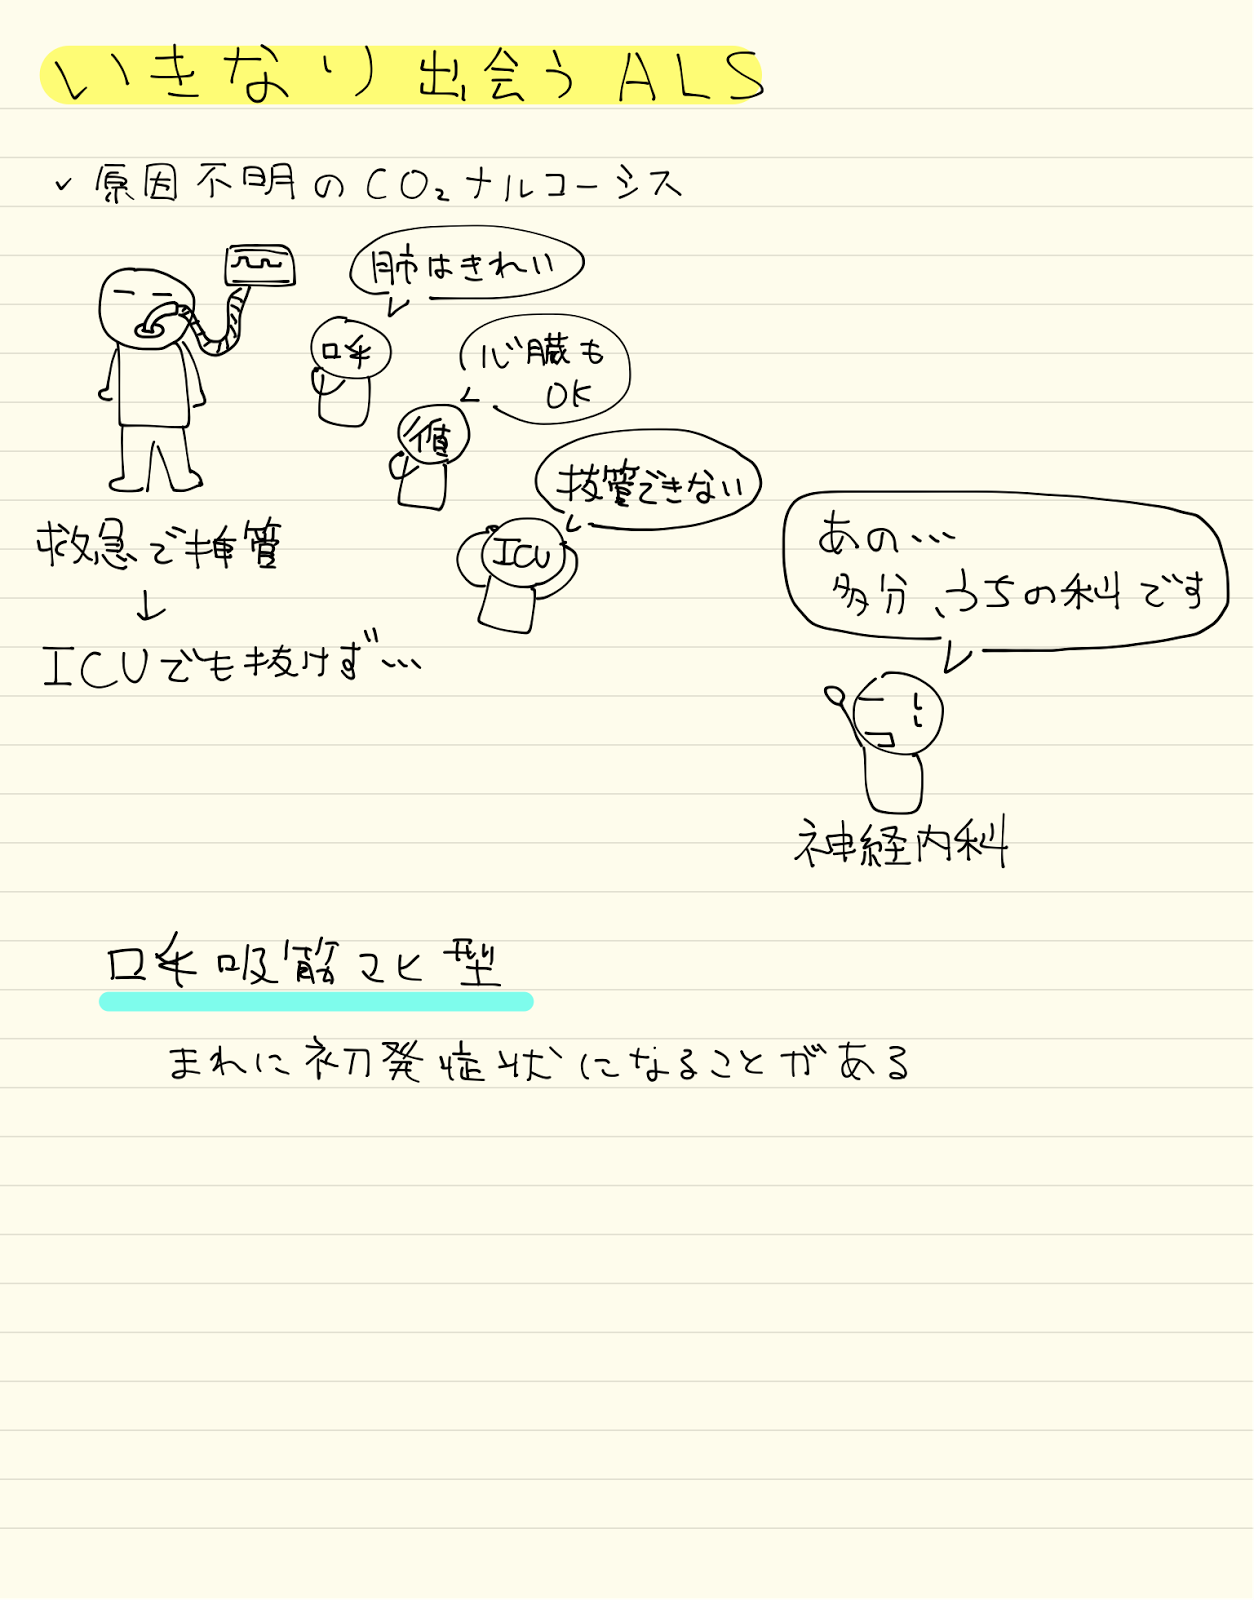 いきなり出会うALS
✓ 原因不明のCO₂ナルコーシス
肺はきれい
呼
心臓も
OK
循
抜管できない
ICU
救急で挿管
↓
ICUでも抜けず…
あの…
多分、うちの科です
神経内科
呼吸筋マヒ型
まれに初発症状になることがある